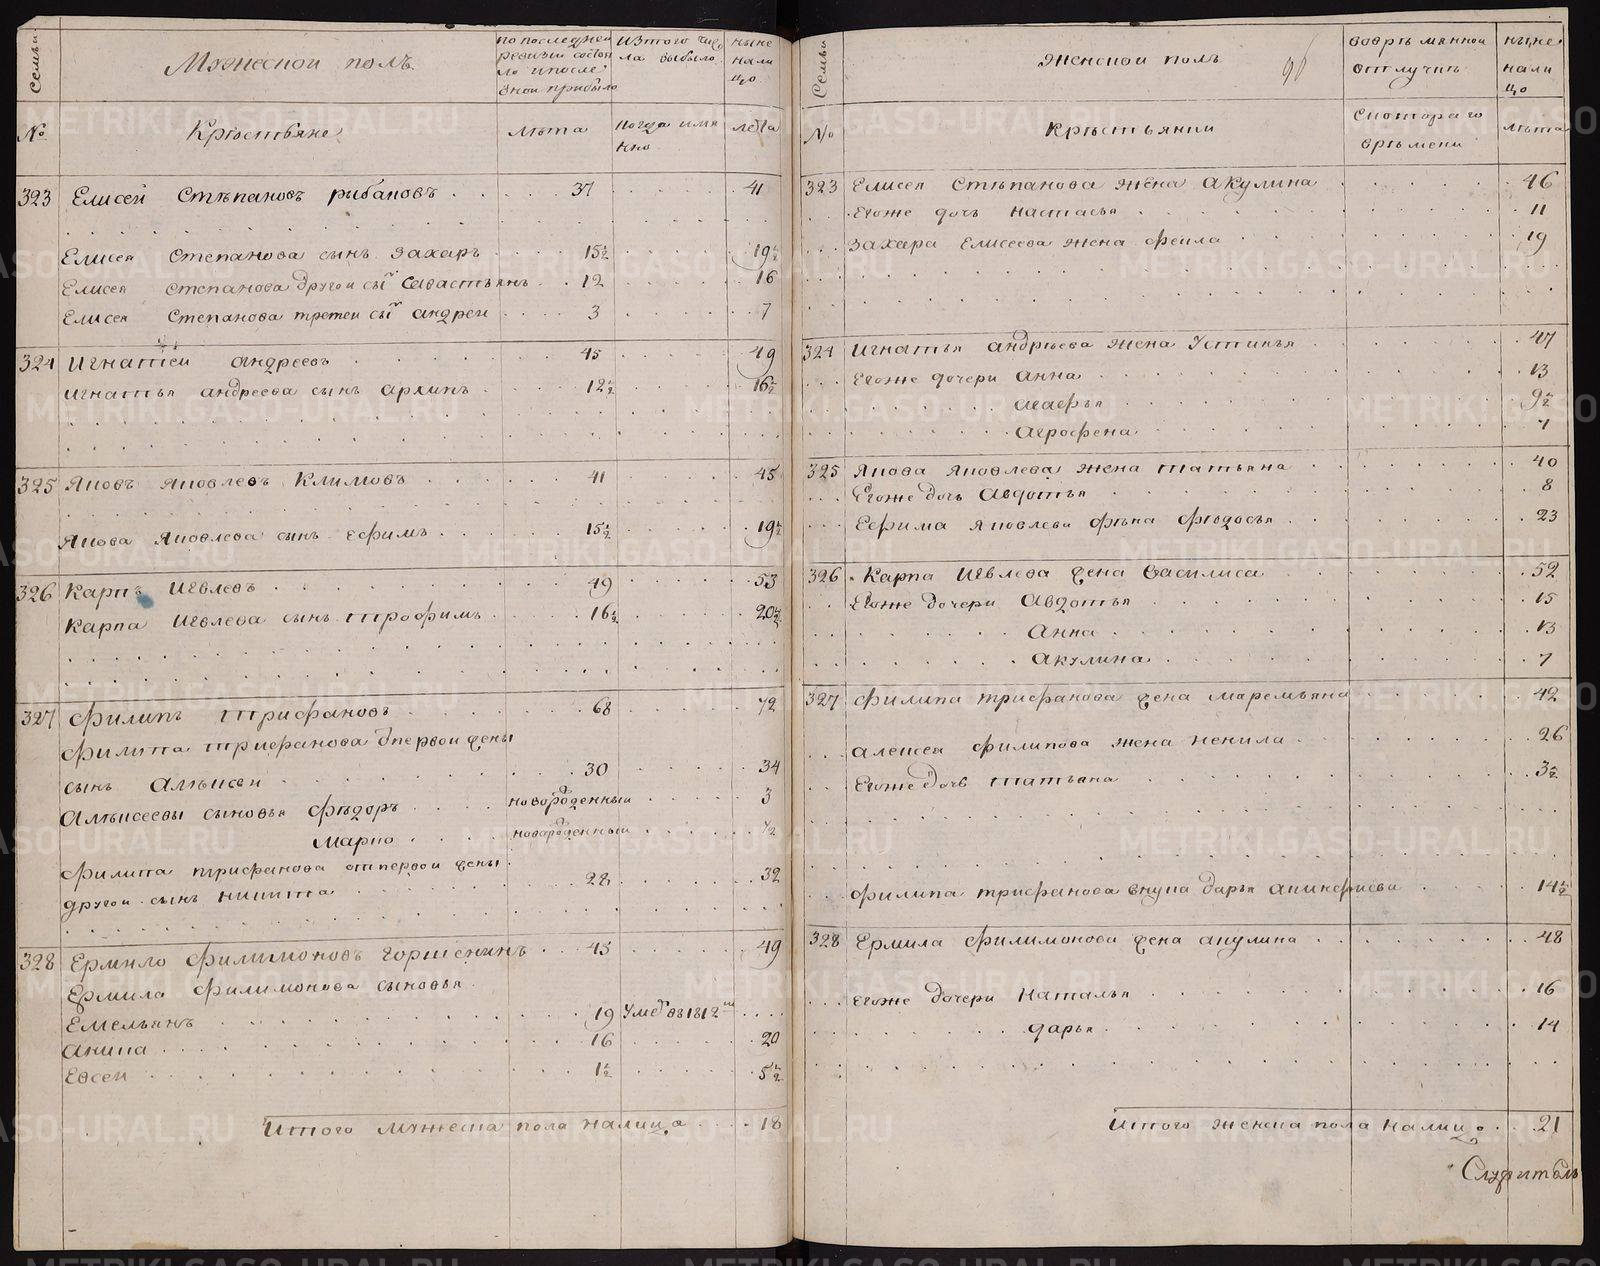 Семьи
Мужеской полъ
по последней ревизии состояло и после оной прибыло
из того числа выбыло
ныне на лицо
№
Кръстьяне
лъта
когда именно
лета
323 Елисей Стъпановъ рыбаповъ 37 41
Елисея Степанова сынъ Захаръ 15½ 19½
Елисея Степанова другои сы савастьянъ 12 16
Елисея Степанова третеи сы андреи 3 7
324 Игнатіеи андреевъ 45 49
Игнатья андреева сынъ архипъ 12½ 16½
325 Яковъ Яковлевъ Климовъ 41 45
Якова Яковлева сынъ ефимъ 15½ 19½
326 Карпъ Иевлевъ 49 53
Карпа Иевлева сынъ трофимъ 16½ 20½
327 филипъ трифановъ 68 72
филипа трифанова опервои жены
сынъ Алъксеи 30 34
Алъксеевы сыновья фъдоръ новорожденныи 3
марко новорожденныи ½
филипа трифанова отпервои жены
другои сынъ никита 28 32
328 Ермило филимоновъ горшенинъ 45 49
Ермила филимонова сыновья
Емельянъ 19 Умеръ въ 1812м
аника 16 20
Евсеи 1½ 5½
Итого мужеска пола налицо 18
Семьи
Женской полъ
96
вовръмянной отлучкъ
ныне на лицо
№
Кръстьянки
скотораго връмени
лъта
323 Елисея Стъпанова жена акулина 46
Егоже дочь настасья 11
Захара Елисеева жена фекла 19
324 Игнатья андръева жена Устинья 47
Егоже дочери анна 13
агафья 9½
агрофена 7
325 Якова Яковлева жена татьяна 40
Егоже дочь авдотья 8
Ефима Яковлева жъна фъдосья 23
326 Карпа Иевлева жена василиса 52
Егоже дочери авдотья 15
анна 13
акулина 7
327 филипа трифанова жена маремьяна 42
алексея филипова жена ненила 26
Егоже дочь татьяна 3½
филипа трифанова внука дарья аникифиева 14½
328 Ермила филимонова жена акулина 48
Егоже дочери наталья 16
дарья 14
Итого женска пола налицо 21
Служитель
METRIKI.GASO-URAL.RU